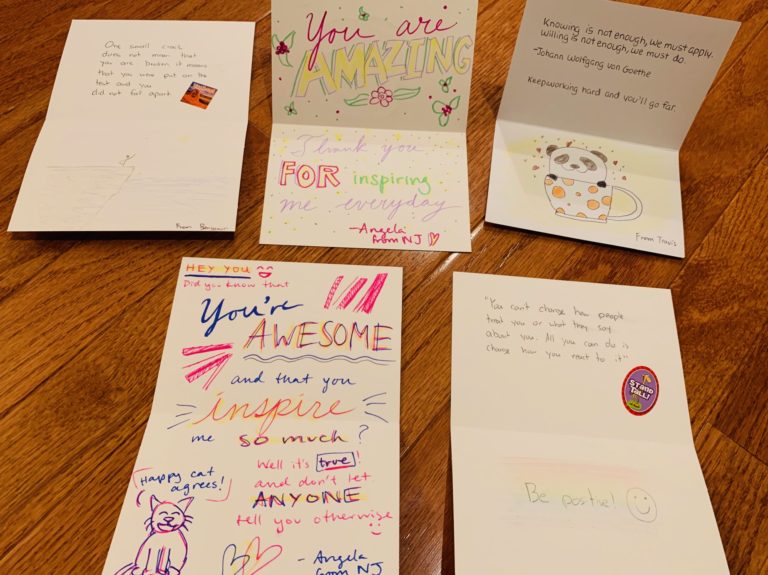 One small crack
does not mean that
you are broken it means
that you were put on the
test and you
did not fall apart.
From Benjamin
You are
AMAZING
Thank you
FOR inspiring
me everyday
-Angela
from NJ
Knowing is not enough, we must apply.
Willing is not enough, we must do.
-Johann Wolfgang von Goethe
Keep working hard and you'll go far.
From Travis
HEY YOU
Did you know that
You're
AWESOME
and that you
inspire
me so much?
Well it's true!
and don't let
ANYONE
tell you otherwise
Happy cat
agrees!
- Angela
from NJ
"You can't change how people
treat you or what they say
about you. All you can do is
change how you react to it"
STAND
TALL!
Be postive!